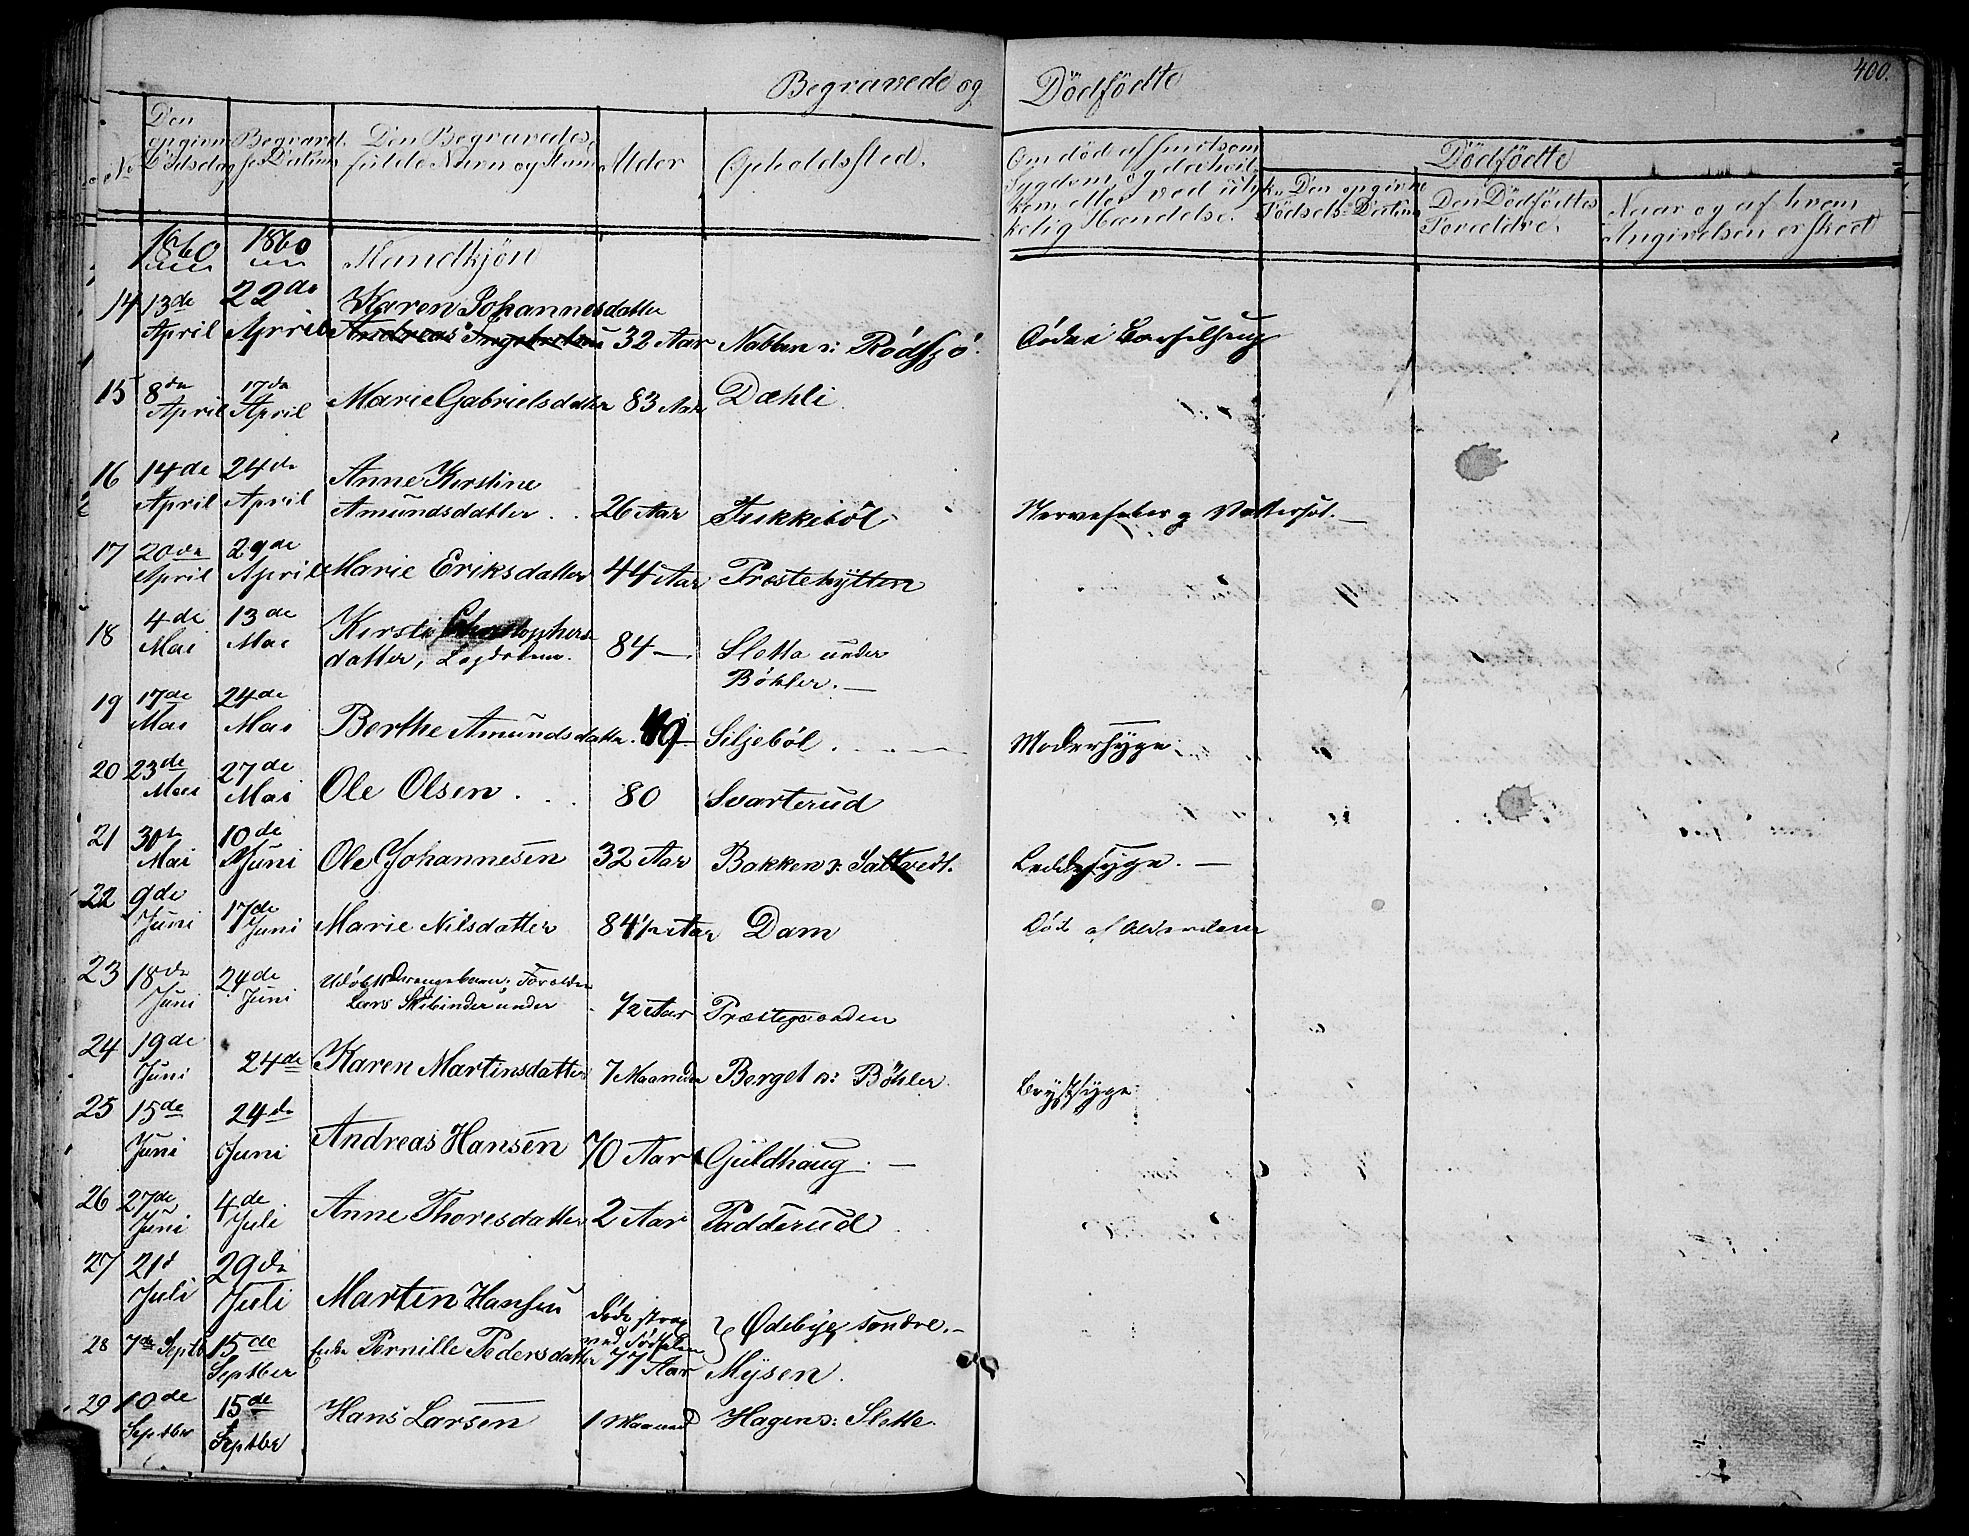 Begravede og Dödfödte
400.
No
Den opgivne Dödsdag
Begravelses Datum
Den Begravedes fulde Navn og Stand
Alder
Opholdssted.
Om död af smitsom Sygdom, og da hvilken, eller ved ulykkelig Hændelse.
Dödfödte
Den opgivne Födsels-Datum
Den Dödfödtes Forældre.
Naar og af hvem Angivelsen er skeed
1860 1860 Mandkjön
14 13de April 22de April Karen Johannesdatter 32 Aar Nabben u: Rødsjø. Døde i Barselseng
15 8de April 17de April Marie Gabrielsdatter 83 Aar Dæhli
16 14de April 24de April Anne Kirstine Amundsdatter 26 Aar Trikkebøl Nervefeber og Vattersot.
17 20de April 29de April Marie Eriksdatter 44 Aar Præstehytten
18 4de Mai 13de Mai Kirsti Christophersdatter, Lægdslem. 84 — Sletta under Bøhler. —
19 17de Mai 24de Mai Berthe Amundsdatter 49 — Siljebøl. Modersyge.
20 23de Mai 27de Mai Ole Olsen. 80 Svarterud
21 30te Mai 10de Juni Ole Johannesen 32 Aar Bakken u: Saltvedt. Leddesyge. —
22 9de Juni 17de Juni Marie Nilsdatter 84 1/2 Aar Dam Död af Alderdom
23 18de Juni 24de Juni Udöbt Drengebarn. Forældre Lars Skibinder under 1/2 Aar Præstegaarden
24 19de Juni 24de Karen Martinsdatter 7 Maaneder Berget u: Bøhler. Brystsyge
25 15de Juni 24de Juni Andreas Hansen 70 Aar Guldhaug. —
26 27de Juni 4de Juli Anne Thoresdatter 2 Aar Padderud
27 21d Juli 29de Juli Martin Hansen döde strax ved Födselen } Ødebye söndre. —
28 7de Septb 15de Septber Enke Pernille Pedersdatter 77 Aar Mysen.
29 10de Septber 15de Septbr Hans Larsen 1 Maaned Hagen u: Slette.